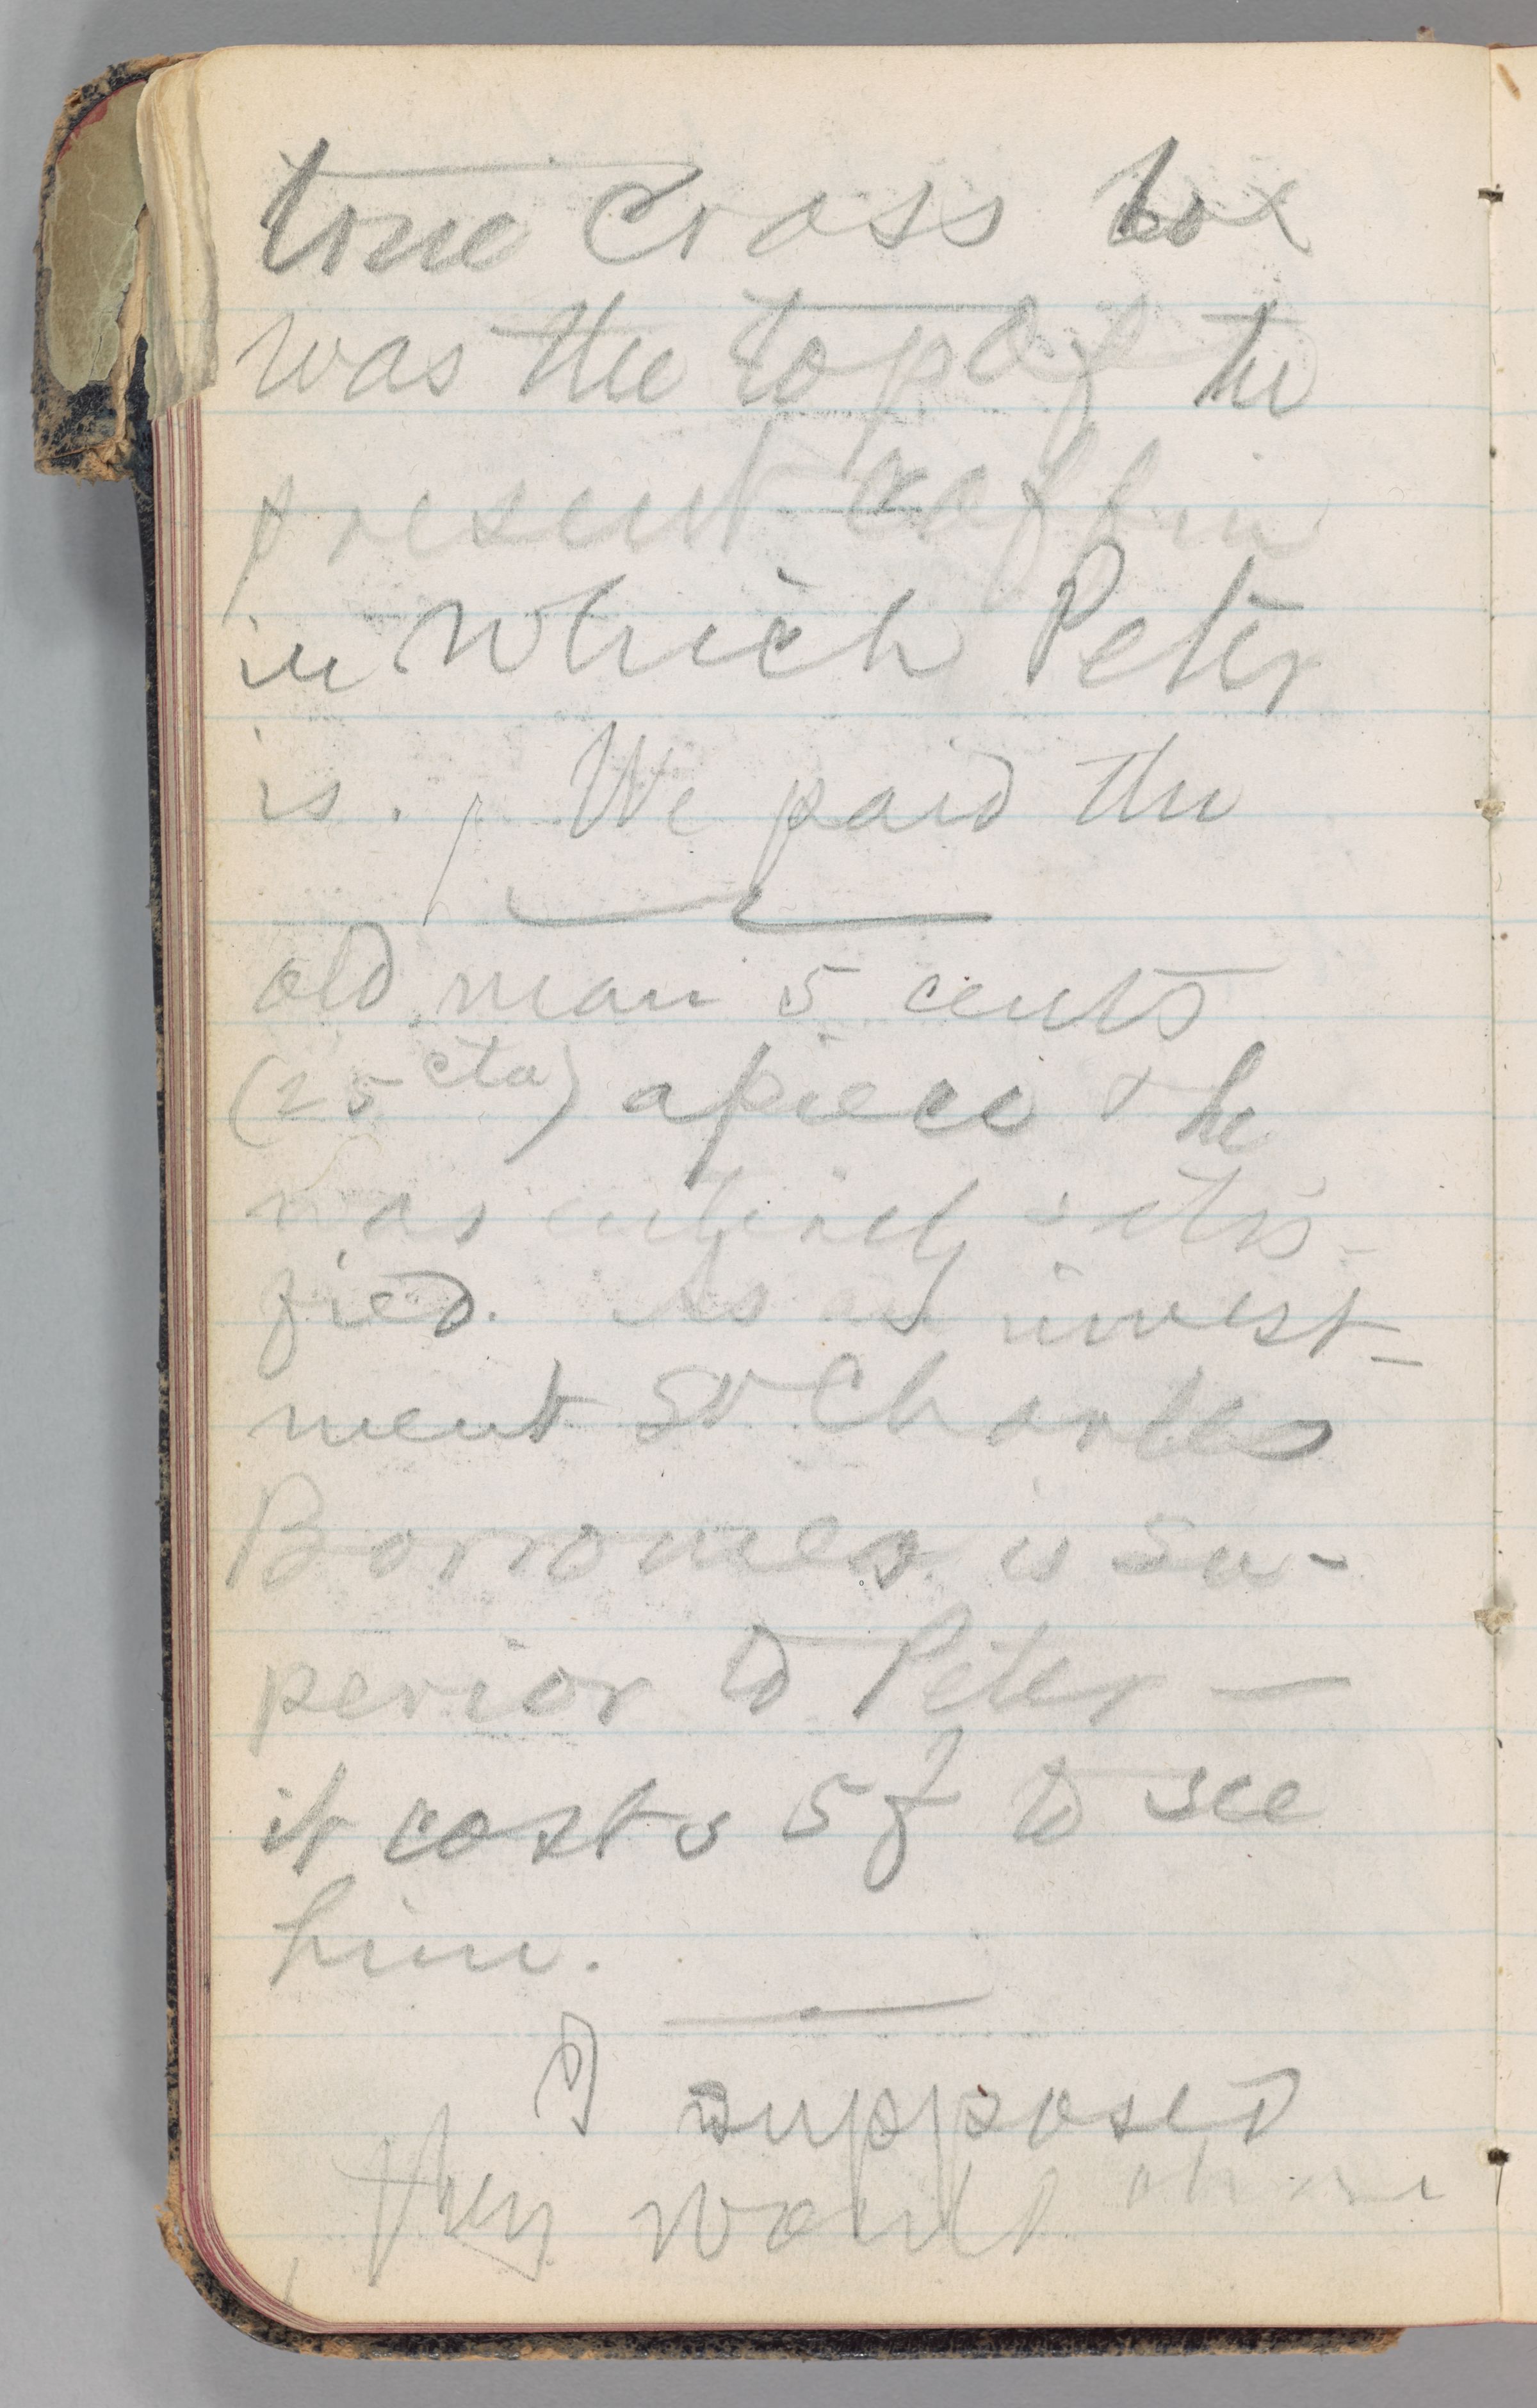 true Cross box
was the top of the
present coffin
in which Peter
is. We paid the
old man 5 cents
(25 cta) apiece & he
was entirely satis-
fied. As an invest-
ment St Charles
Borromeo is su-
perior to Peter —
it costs 5f to see
him.
I supposed
they would